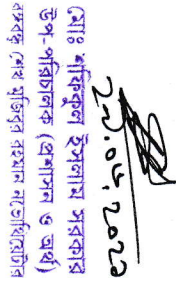 ২২.০৮.২০২১
মোঃ শফিকুল ইসলাম সরকার
উপ-পরিচালক (প্রশাসন ও অর্থ)
বঙ্গবন্ধু শেখ মুজিবুর রহমান নভোথিয়েটার